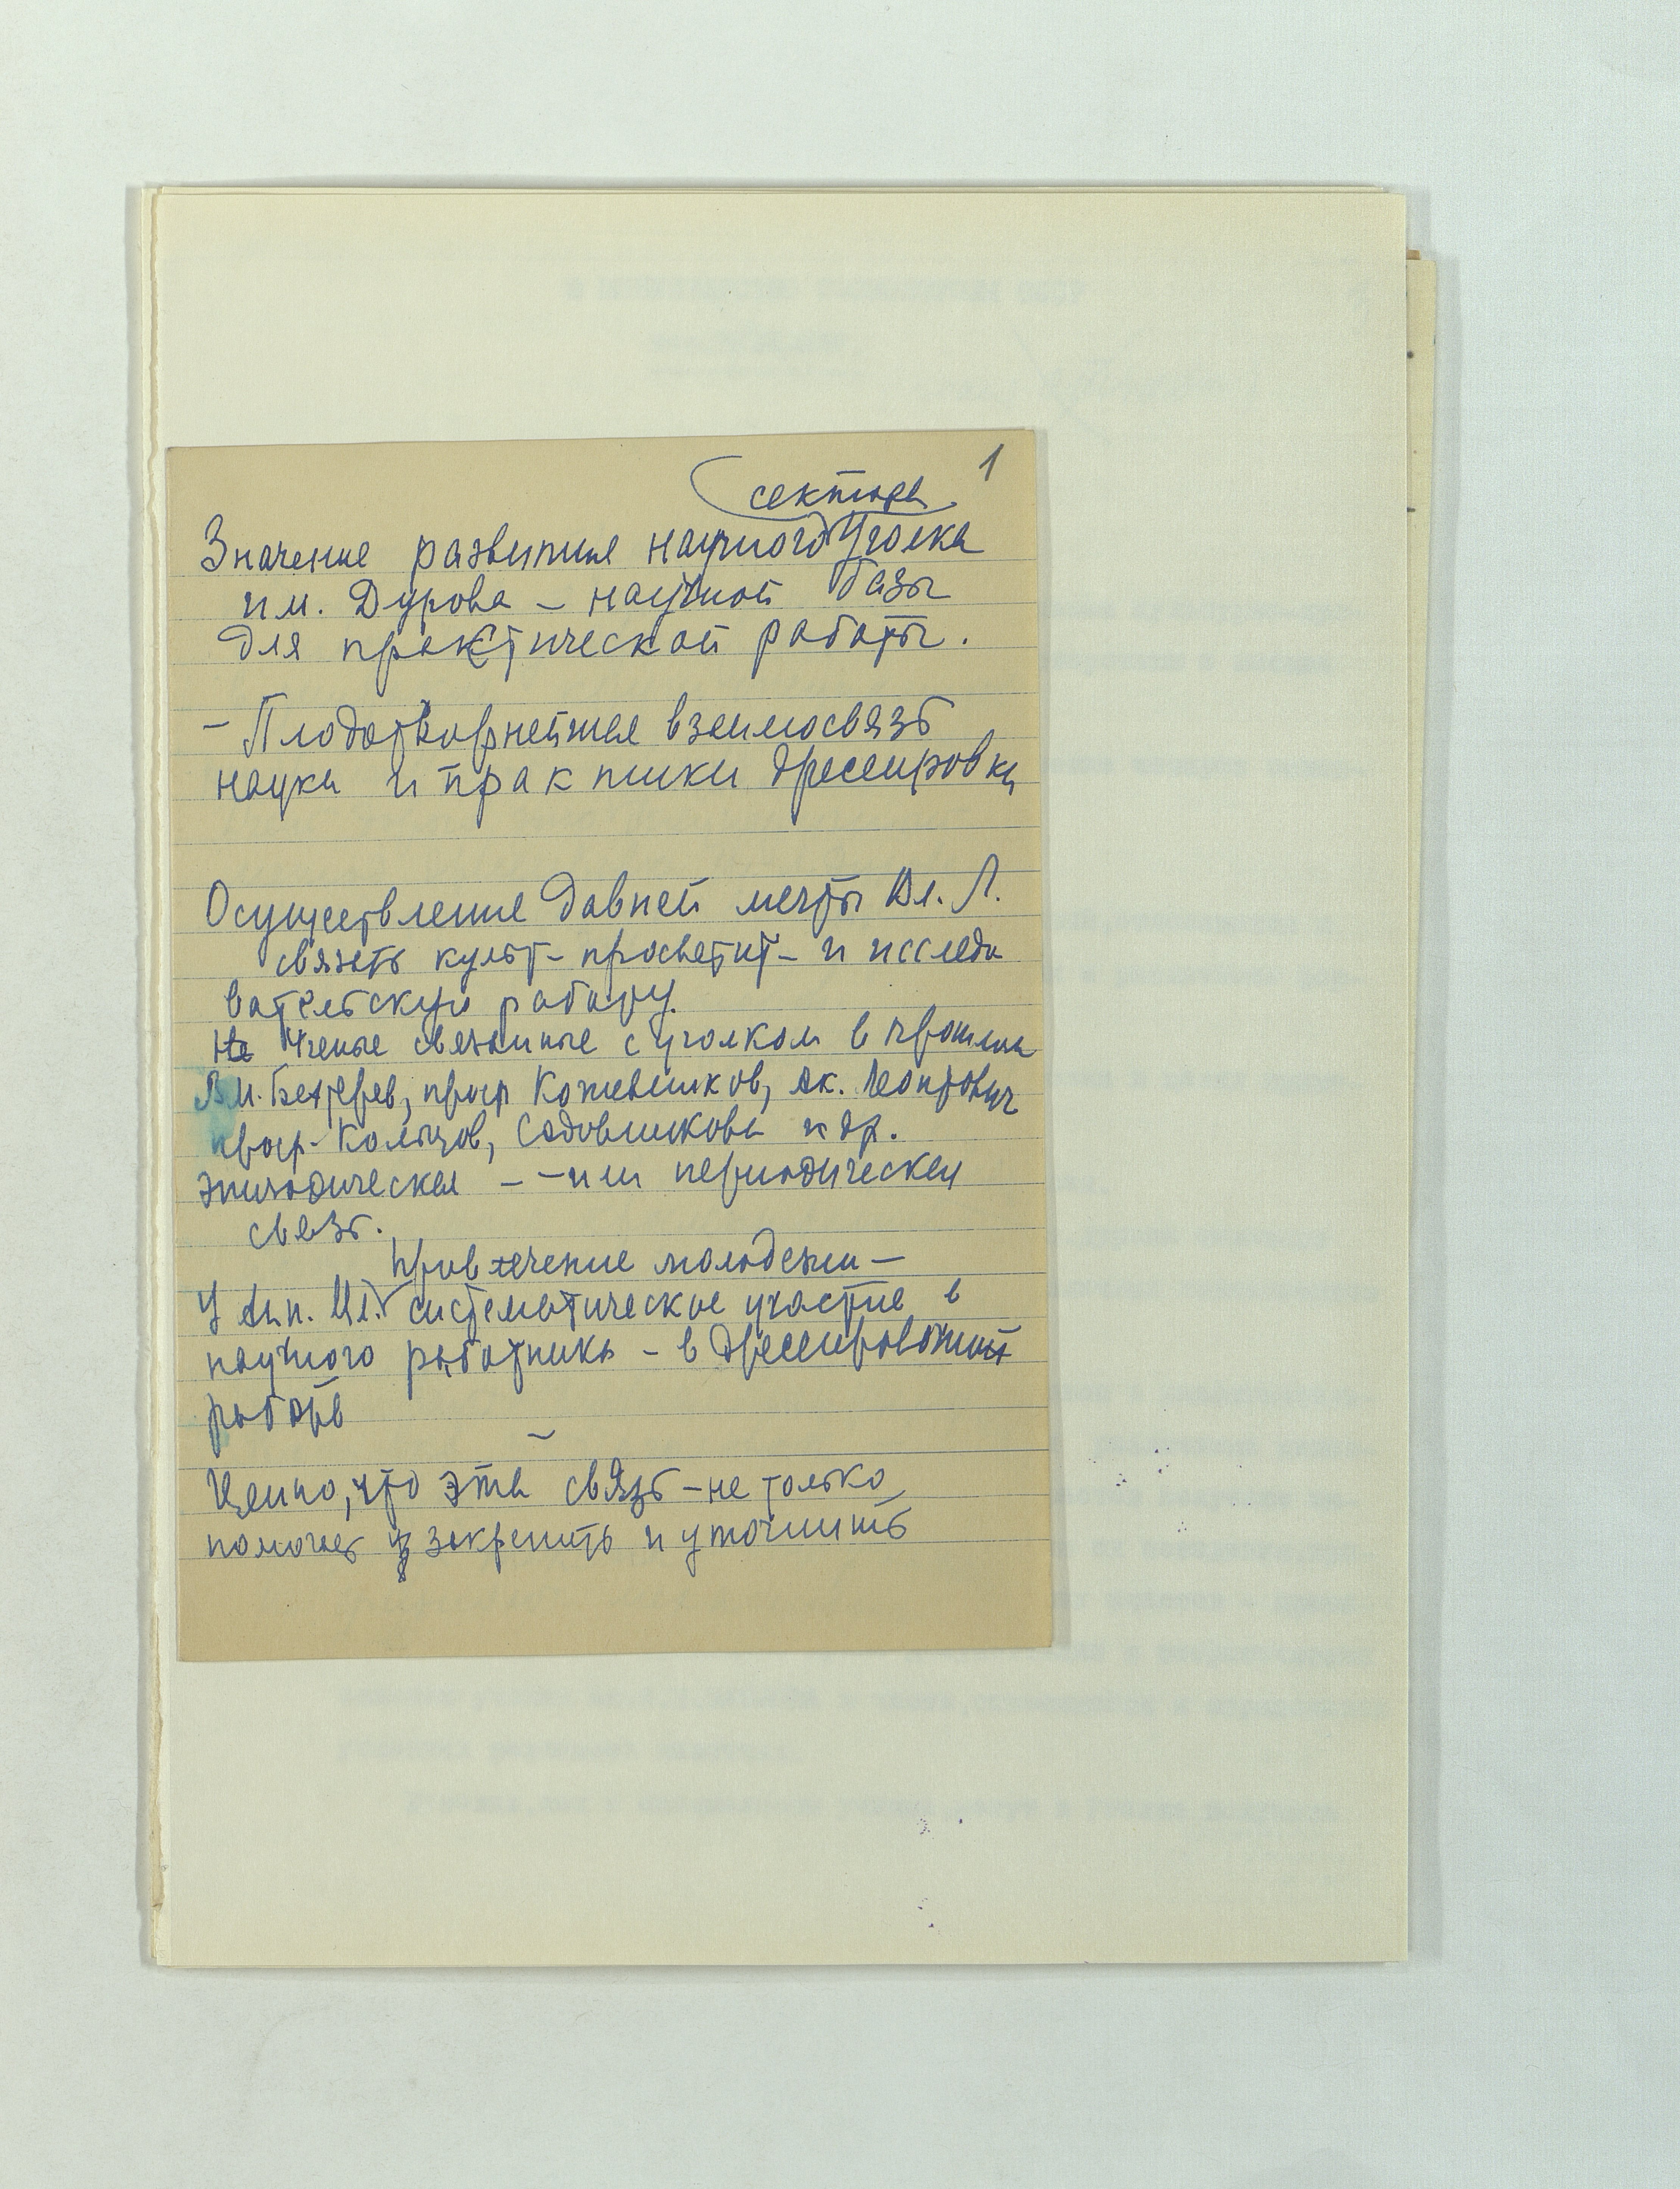 1
сектора
Значение развития научного Уголка
им. Дурова – научной базы
для практической работы.
– Плодотворнейшая взаимосвязь
науки и практики дрессировки
Осуществление давней мечты Вл. Л.
связать культ-просветит- и исследо
вательскую работу.
Не Ученые связанные с уголком в прошлом
В.М. Бехтерев, проф Кожевников, Ак. Леонтович
проф. Кольцов, Садовникова и др.
эпизодическая – – или периодическая
связь.
Привлечение молодежи –
У Ан. Вл. систематическое участие в
научного работника – в дрессировочной
работе
Ценно, что эта связь – не только
помогает закрепить и уточнить